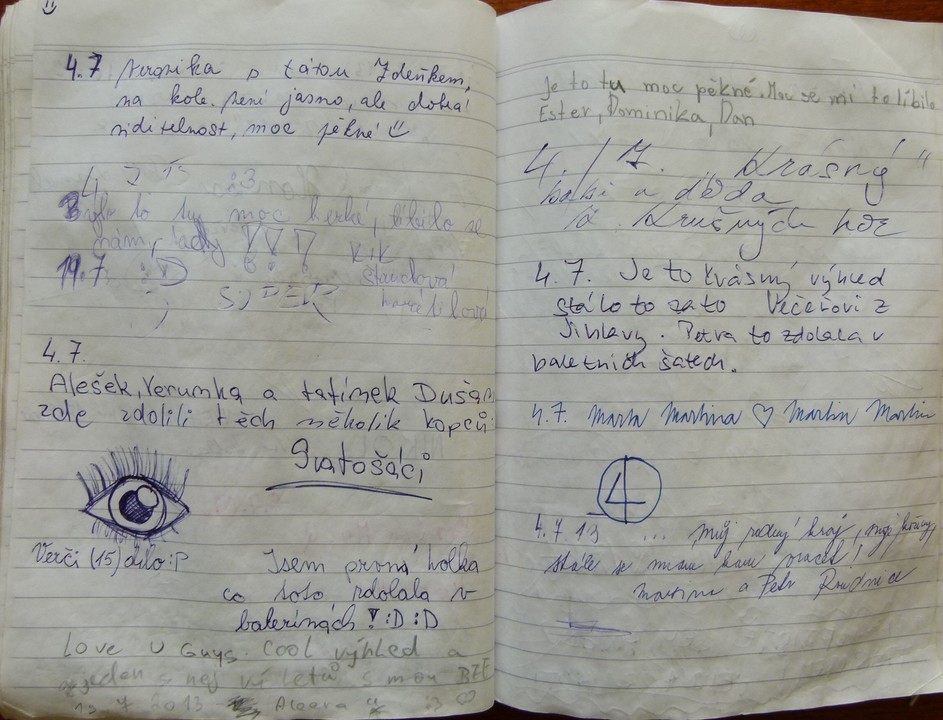 4.7 Veronika s tátou Zdeňkem,
na kole. není jasno, ale dobrá
viditelnost, moc pěkné
Bylo to tu moc herké, líbilo se
nám, tady
19.7 :D
4.7.
Alešek, Verunka a tatínek Dušan
zde zdolili těch několik kopců
Svatošáci
Verči (15) dílo :P
Jsem prvná holka
co toto zdolala v
balerínách! :D :D
Love U Guys. Cool výhled a
jeden s nej vi letů s mou BFF
19 7 2013 :3 ♡
Je to tu moc pěkné. Moc se mi to líbilo
Ester, Dominika, Dan
4./7. Krásný"
babi a děda
Krušných hor
4.7. Je to krásný výhled
stálo to za to Večeřovi z
Jihlavy. Petra to zdolala v
baletních šatech.
4.7. Marta Martina ♡ Martin Martin
4
4.7 13 ... můj rodný kraj, moje kořeny,
stále se mám kam vracet!
Martina a Petr Roudnice